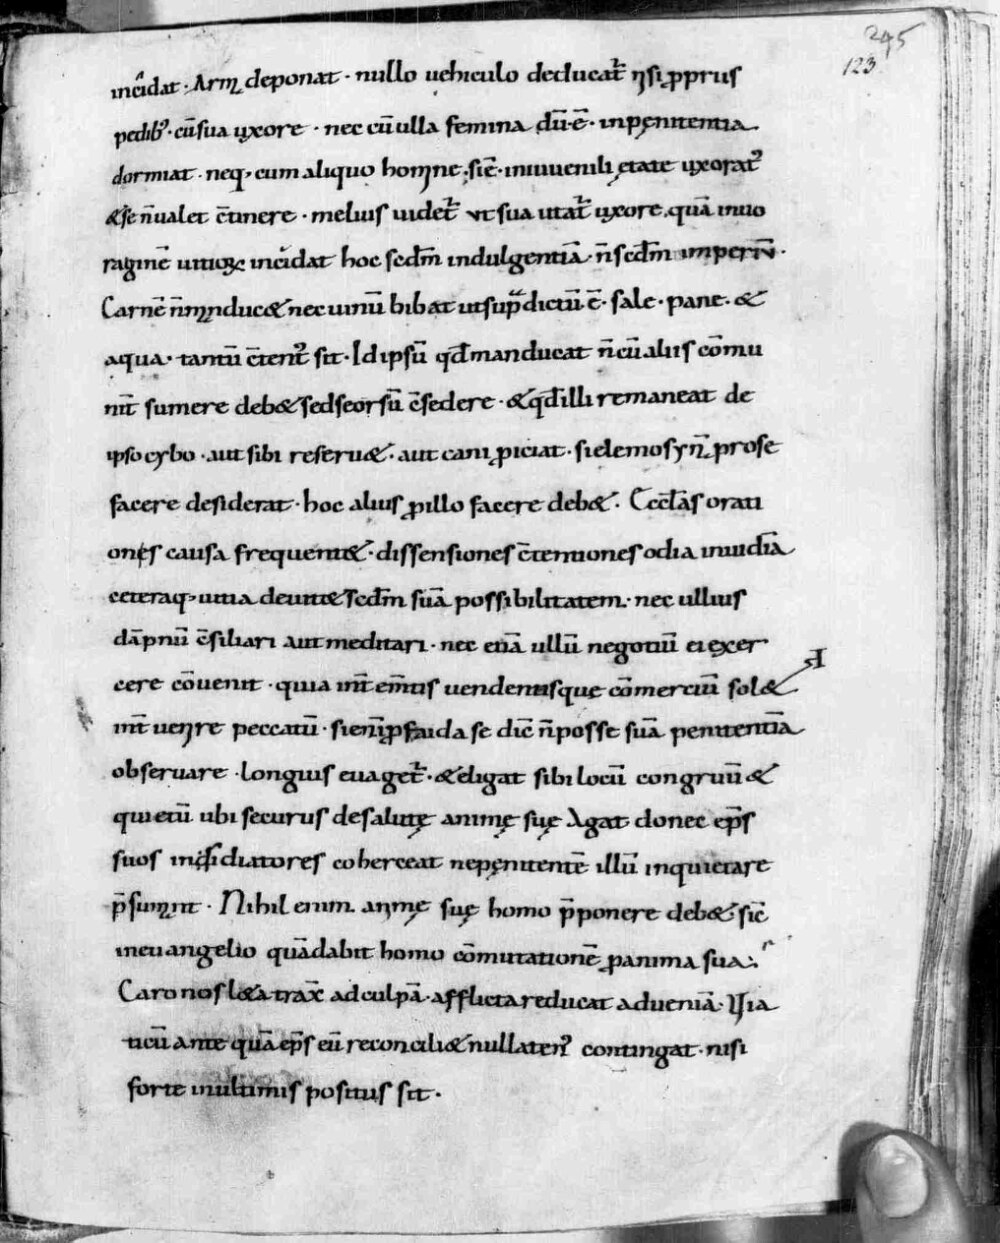 245
123
incidat · Arm̅ deponat · nullo uehiculo deducat᷑ nisi ꝓprius
pedib; · cū sua uxore · nec cū ulla femina dū · ē · inpęnitentia
dormiat · neq; cum aliquo homine · sic̄ · iniuuenili ętate uxorat᷑
& se n̄ ualet c̄tinere · melius uidet᷑ ut sua utat᷑ uxore · quā inuo
raginē uitioꝝ incidat hoc scdm̄ indulgentiā · n̄ scdm̄ imperiū ·
Carnē n̄ manduc& nec uinū bibat ut sup̄dictū · ē · sale · pane · &
aqua · tantū c̄tent᷑ sit · Id ipsū qd̄ manducat n̄ cū aliis cōmu
nit̄ sumere deb& sed seorsū c̄sedere · & qd̄ illi remaneat de
ipso cybo · aut sibi reseru& · aut cani ꝓiciat · si elemosynā pro se
facere desiderat · hoc alius ꝓ illo facere deb& · Ęccl̄as orati
ones causa frequent& · dissensiones c̄tentiones odia inuidiā
ceteraq; uitia deuit& scdm̄ suā possibilitatem · nec ullius
dāpnū c̄siliari aut meditari · nec etiā ullū negotiū ei exer
cere cōuenit · quia int̄ em̄tis uendentisque cōmerciū sol&
int̄uenire peccatū · si enī ꝓ faida se dic̄ n̄ posse suā penitentiā
obseruare · longius euaget᷑ · & eligat sibi locū congruū &
quietū ubi securus de salute animę suę Agat donec ep̄s
suos insidiatores coherceat ne pęnitentē illū inquietare
p̄sumant · Nihil enim animę suę homo p̄ponere deb& sic̄
in euangelio quā dabit homo cōmutationē ꝓ anima sua ·
Caro nos l&a trax̄ ad culpā · afflicta reducat ad ueniā · Uia
ticū ante quā ep̄s eū reconcili& nullaten᷒ contingat · nisi
forte in ultimis positus sit ·